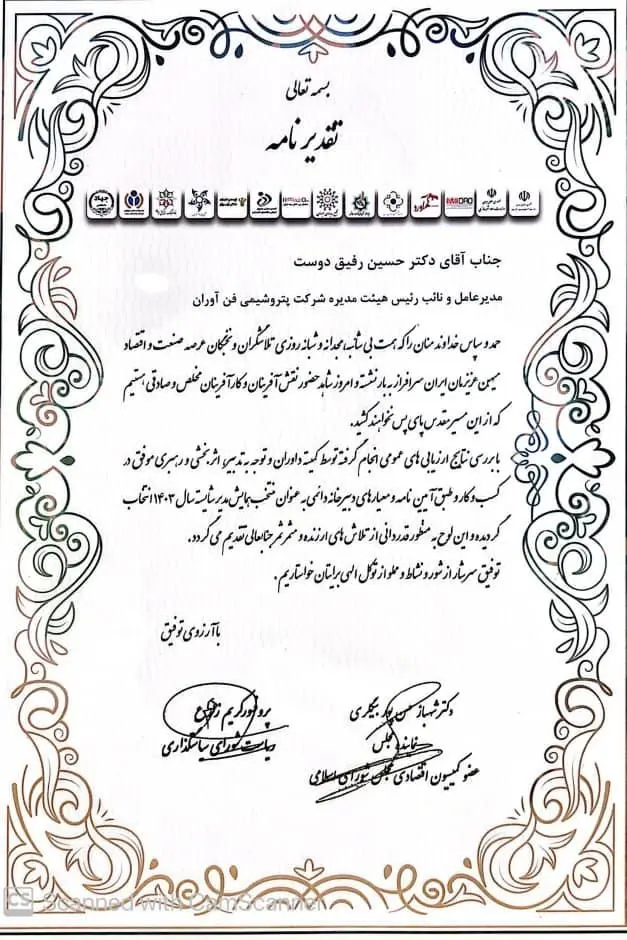 بسمه تعالی
تقدیر نامه
جهاد
IMIDRO
جناب آقای دکتر حسین رفیق دوست
مدیرعامل و نائب رئیس هیئت مدیره شرکت پتروشیمی فن آوران
حمد و سپاس خداوند منان را که همت بی شائبه، مجدانه و شبانه روزی تلاشگران و نخبگان عرصه صنعت و اقتصاد
میهن عزیزمان ایران سرافراز به بار نشسته و امروز شاهد حضور نقش آفرینان و کارآفرینان مخلص و صادقی هستیم
که از این مسیر مقدس پای پس نخواهند کشید.
با بررسی نتایج ارزیابی های عمومی انجام گرفته توسط کمیته داوران و توجه به تدبیر، اثر بخشی و رهبری موفق در
کسب و کار و طبق آئین نامه و معیارهای دبیرخانه دائمی به عنوان منتخب همایش مدیر شایسته سال ۱۴۰۳ انتخاب
گردیده و این لوح به منظور قدردانی از تلاش های ارزنده و مثمر ثمر جنابعالی تقدیم می گردد.
توفیق سرشار از شور و نشاط و مملو از توکل الهی برایتان خواستاریم.
با آرزوی توفیق
دکتر شهباز حسن پور بیگلری
نماینده مجلس
عضو کمیسیون اقتصادی مجلس شورای اسلامی
پروفسور کریم
ریاست شورای سیاستگذاری
CS Scanned with CamScanner